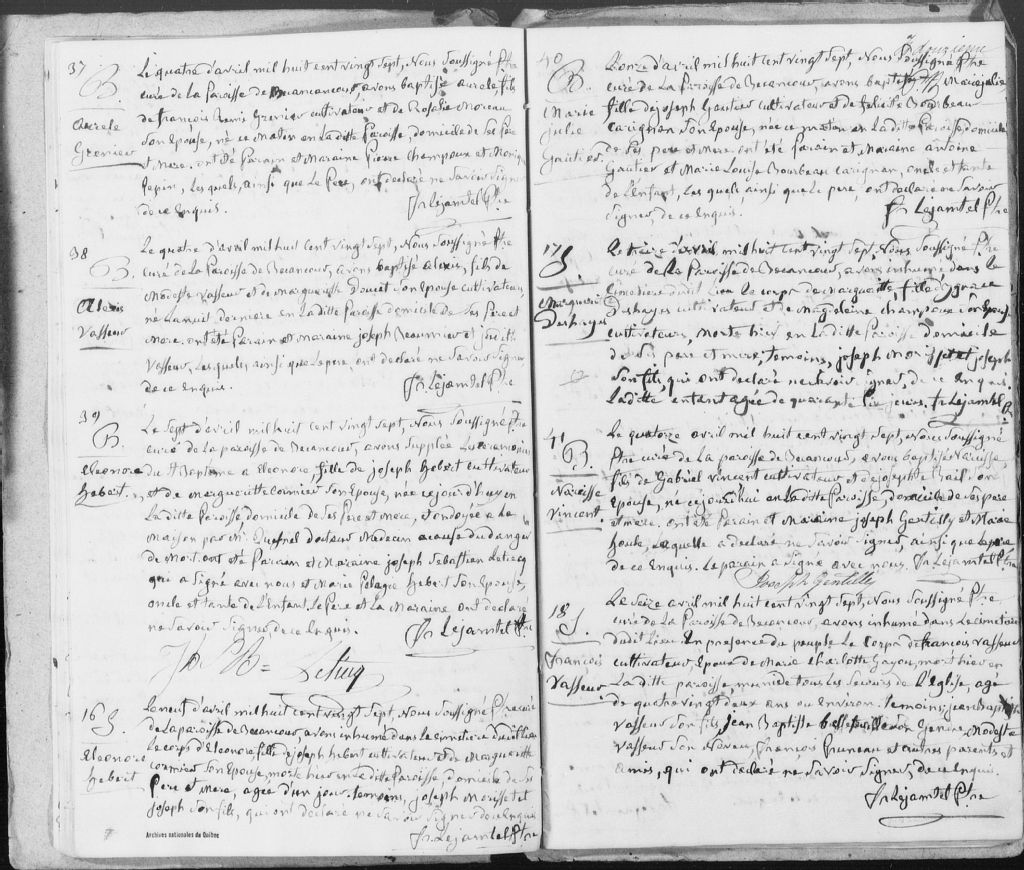 37
B.
Aurele
Grenier
Le quatre d'avril mil huit cent vingt sept, Nous Soussigné Ptre
curé de la Paroisse de Becancour, avons baptisé aurele fils
de francois Grenier cultivateur et de Rosalie Moreau
Son Epouse, né ce matin en Laditte Paroisse, domicile de Ses Pere
et Mere. ont été Parain et Maraine Pierre Champoux et
Pepin, Lesquels, ainsi que Le Pere, ont declaré ne Savoir Signer
de ce Enquis.
Fr. Lejamtel Ptre
38
B.
Alexis
Vasseur
Le quatre d'avril mil huit Cent vingt Sept, Nous Soussigné Ptre
curé de La Paroisse de Becancour, avons baptisé alexis, fils de
Modeste Vasseur et de Marguerite Son Epouse cultivateur,
né La nuit derniere en Laditte Paroisse domicile de Ses Pere et
Mere. ont été Parain et Maraine joseph et
Vasseur, Lesquels ainsi que Le pere, ont declaré ne Savoir Signer
de ce Enquis.
Fr. Lejamtel Ptre
39
B
Eleonore
Hebert
Le Sept d'avril mil huit Cent vingt Sept, Nous Soussigné Ptre
curé de La paroisse de Becancour, avons Supplée Les ceremonies
du Bapteme a Eleonore, fille de joseph Hebert cultivateur
et de marguerite cormier Son Epouse, née cejourd'huy en
La ditte Paroisse domicile de Ses Pere et Mere, et ondoyée a la
Maison par Mr. Quesnel docteur Medecin a cause du danger
de Mort. ont été Parain et Maraine joseph Sebastien
qui a Signé avec nous et Marie Pelagie Hebert Son Epouse,
oncle et tante de L'Enfant. Le Pere et La Maraine ont declaré
ne Savoir Signer de ce Enquis.
Fr. Lejamtel Ptre
16 S.
Eleonore
Hebert
Le neuf d'avril mil huit Cent vingt Sept, Nous Soussigné Ptre curé
de La paroisse de Becancour, avons inhumé dans Le Cimetiere dudit Lieu
Le corps d'Eleonore, fille de joseph hebert cultivateur et de Marguerite
cormier Son Epouse, morte hier en La ditte Paroisse domicile de Ses
Pere et Mere, agée d'un jour. temoins, joseph Morisset et
joseph Son fils, qui ont declaré ne Savoir Signer de ce Enquis
Fr. Lejamtel Ptre
Archives nationales du Québec
40
B.
Marie
Julie
Gautier
Le onze d'avril mil huit Cent vingt Sept, Nous Soussigné Ptre
curé de La Paroisse de Becancour, avons baptisé Marie julie
fille de joseph Gautier cultivateur et de felicité Bourbeau
Carignan Son Epouse, née ce matin en Laditte Paroisse domicile
de Ses pere et Mere. ont été Parain et Maraine antoine
Gautier et Marie Louise Bourbeau Carignan, oncle et tante
de L'Enfant, Lesquels ainsi que Le pere, ont declaré ne Savoir
Signer de ce Enquis.
Fr Lejamtel Ptre
17
S.
Marguerite
Deshayes
Le treize d'avril, mil huit cent vingt Sept, Nous Soussigné Ptre
curé de La Paroisse de Becancour, avons inhumé dans Le
Cimetiere dudit Lieu Le corps de Marguerite, fille d'ignace
Deshayes cultivateur et de Magdeleine champoux Son Epouse
cultivateur, Morte hier en La ditte Paroisse domicile
de Ses pere et mere, temoins, joseph Morisset et joseph
Son fils, qui ont declaré ne Savoir Signer, de ce Enquis.
La ditte enfant agée de quarante Six jours. Fr Lejamtel
41
B.
Narcisse
Vincent
Le quatorze avril mil huit Cent vingt Sept, Nous Soussigné
Ptre curé de La paroisse de Becancour, avons baptisé Narcisse,
fils de Gabriel Vincent cultivateur et de josephte Son
Epouse, né cejourdhui en La ditte Paroisse, domicile de Ses pere
et mere, ont été Parain et Maraine joseph Gentilly et Marie
houle, Laquelle a declaré ne Savoir Signer, ainsi que Le pere
de ce Enquis. Le parain a Signé avec nous. Fr Lejamtel Ptre
Joseph Gentilly
18
S.
François
Vasseur
Le Seize avril mil huit Cent vingt Sept, Nous Soussigné Ptre
curé de La Paroisse de Becancour, avons inhumé dans Le cimetiere
dudit Lieu En presence du peuple Le Corps de francois Vasseur
cultivateur, Epoux de Marie Charlotte Gayou, mort hier en
La ditte paroisse, muni de tous Les Secours de L'Eglise, agé
de quatre vingt deux ans ou Environ. temoins, jean Baptiste
Vasseur Son fils, jean Baptiste Son Gendre, Modeste
Vasseur Son Neveu, François Pruneau et autres parents et
amis, qui ont declaré ne Savoir Signer, de ce Enquis.
Fr. Lejamtel Ptre